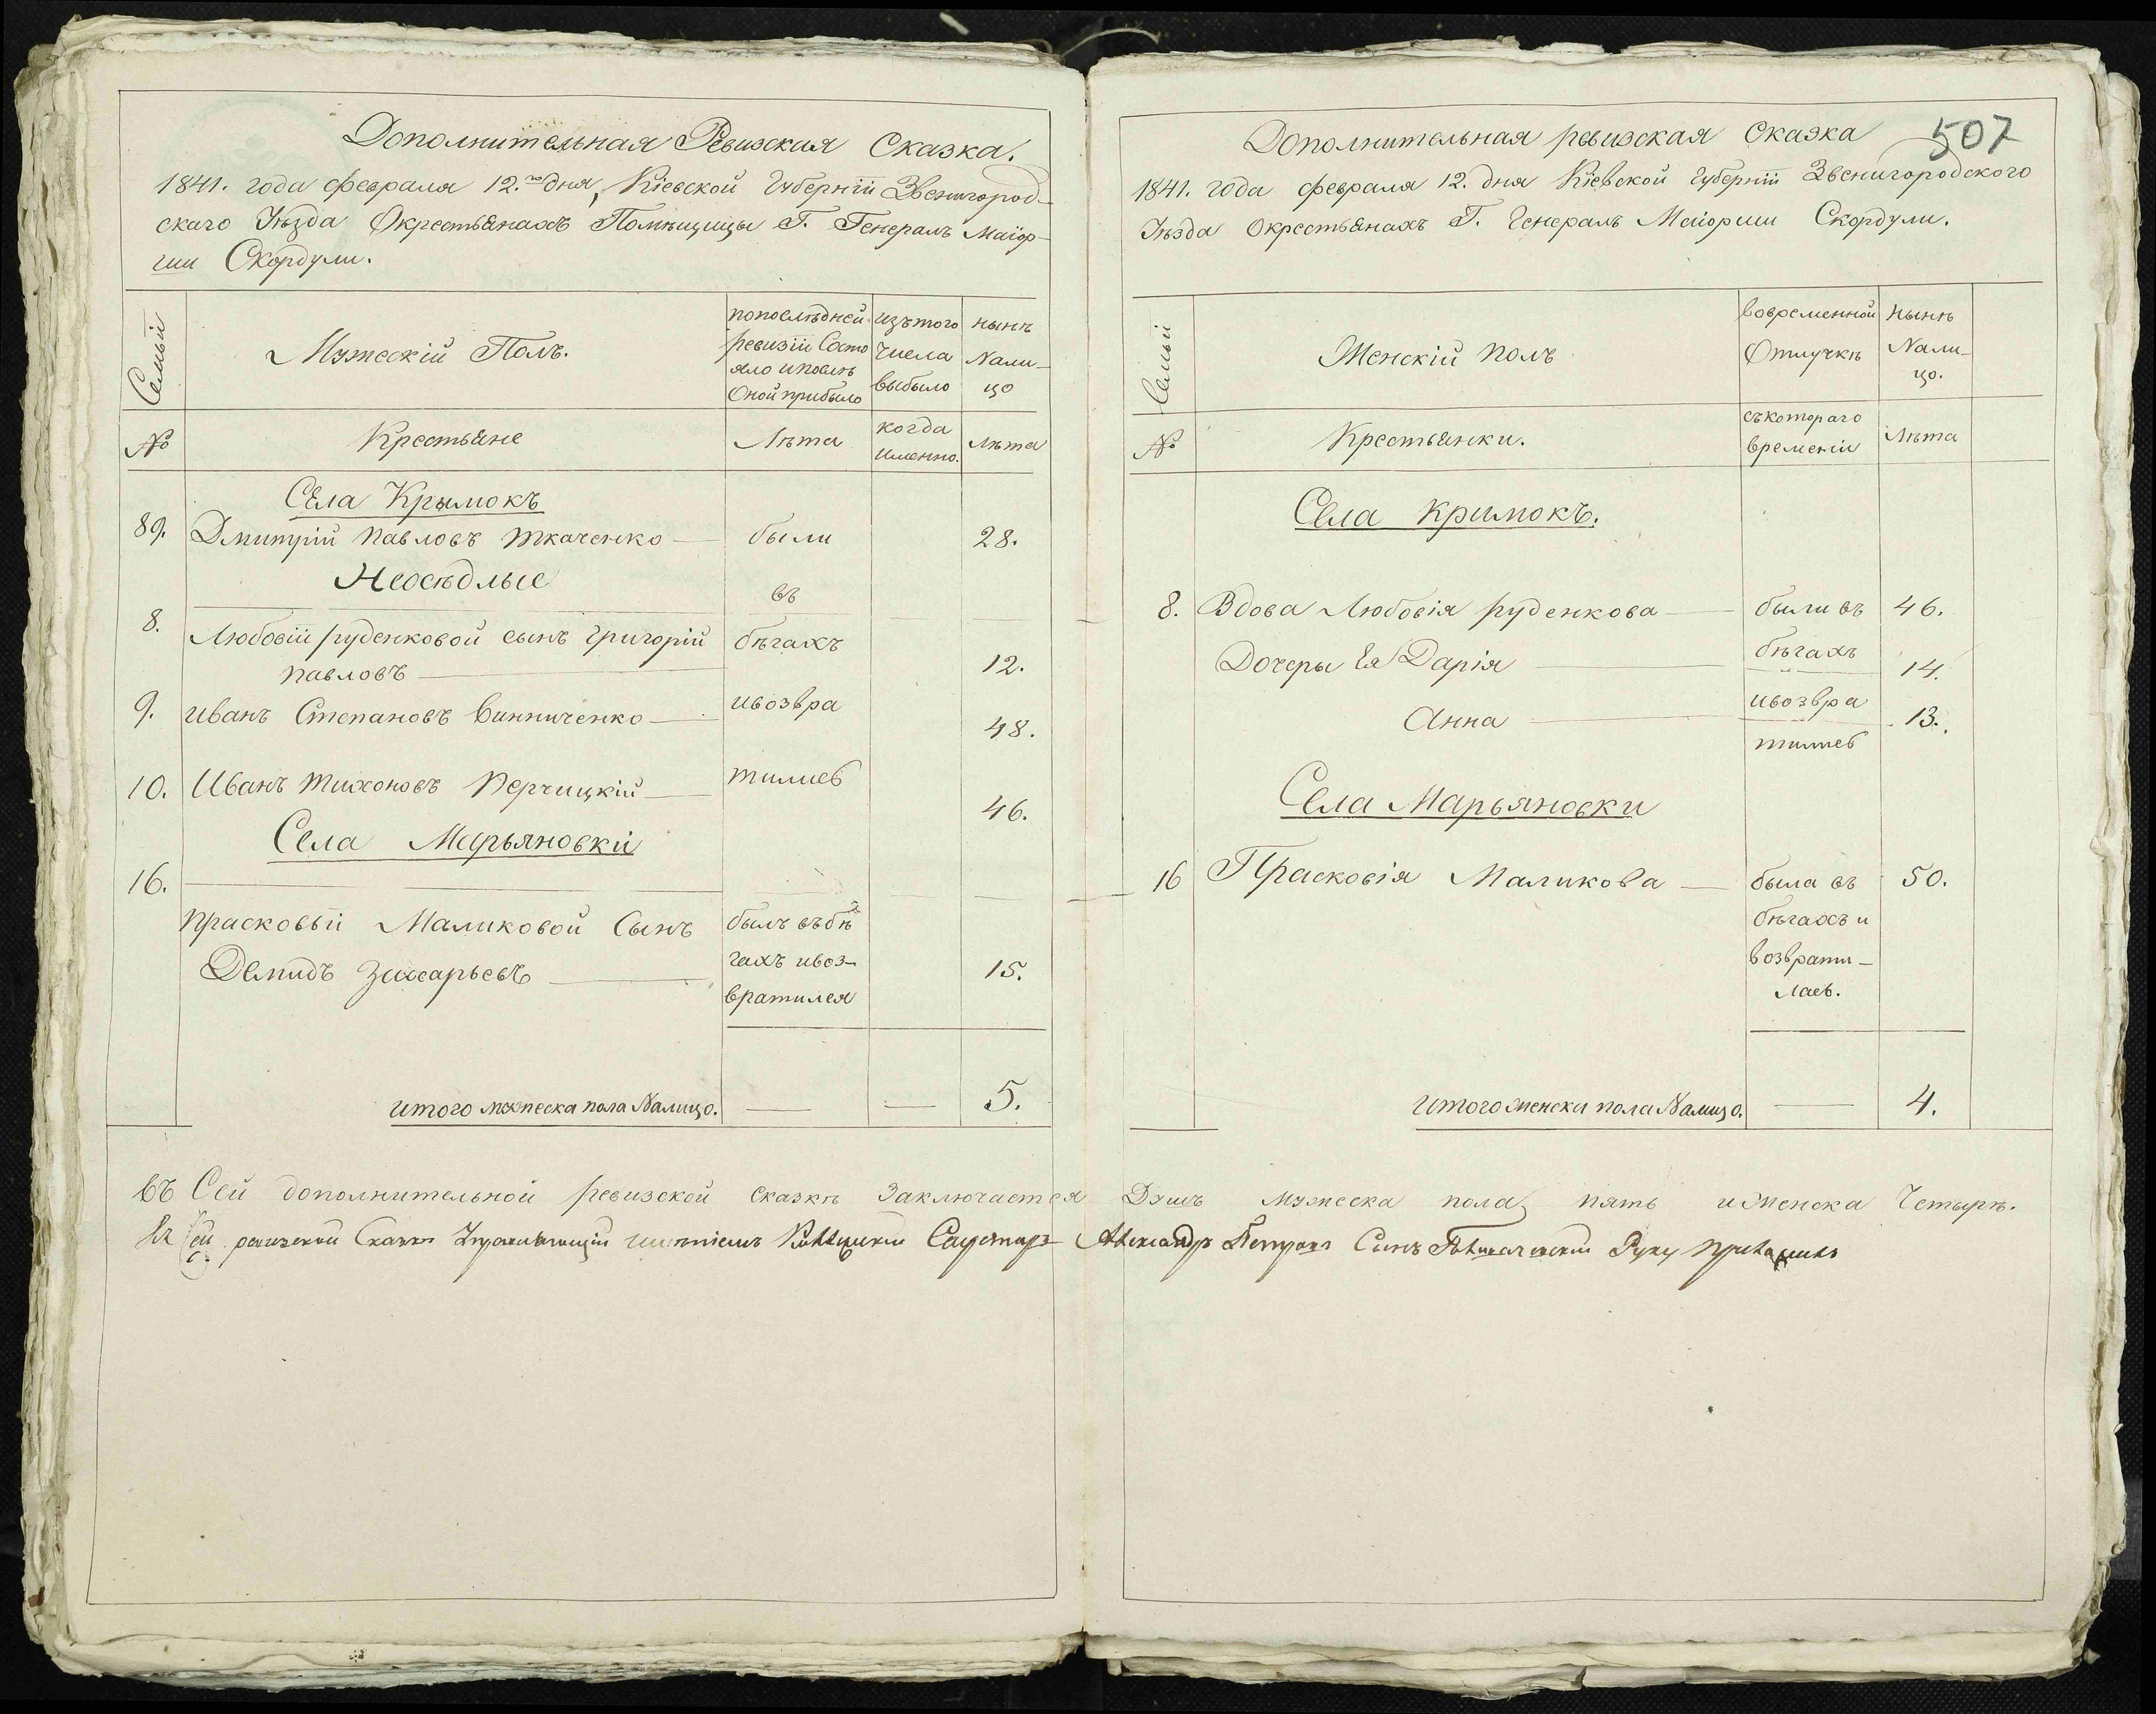 Дополнительная Ревизская Сказка.
1841. года февраля 12.го дня, Кіевской Губерніи Звенигород-
скаго Уѣзда Окрестьянахъ Помѣщицы Г. Генералъ Маіор-
ши Скордули.
Семьи
Мужескій Полъ.
попослѣдней
ревизіи Состо
яло ипослѣ
Оной прибыло
изътого
числа
выбыло
нынѣ
Nали-
цо
№
Крестьяне
Лѣта
когда
именно.
лѣта
Села Крымокъ
89. Дмитрій павловъ ткаченко были 28.
Неосѣдлые
въ
8. Любовіи руденковой сынъ григорій бѣгахъ
павловъ 12.
9. иванъ Степановъ винниченко ивозвра 48.
10. Иванъ тихоновъ Перчицкій тились 46.
Села Марьяновки
16.
прасковьи Маликовой Сынъ былъ въбѣ
Демидъ захарьевъ гахъ ивоз- 15.
вратился
итого мужеска пола Nалицо. 5.
507
Дополнительная ревизская сказка
1841. года февраля 12. дня Кіевской губерніи Звенигородского
Уѣзда Окрестьянахъ Г. Генералъ Маіорши Скордули.
Семьи
Женскій полъ
вовременной
Отлучкѣ
нынѣ
Nали-
цо.
№
Крестьянки.
съкотораго
времени
лѣта
Села Кримокъ.
8. Вдова Любовія руденкова были въ 46.
Дочеры Ея Дарія бѣгахъ 14.
Анна ивозвра 13.
тились
Села Марьяновки
16 Прасковія Маликова была въ 50.
бѣгахъ и
возврати-
лась.
итого женска пола Nалицо. 4.
въ Сей дополнительной ревизской сказкѣ Заключается Душъ мужеска пола, пять иженска Четырѣ.
Къ сей ревизской Сказкѣ Управляющій имѣніемъ Александръ Петровъ Сынъ Руку приложилъ